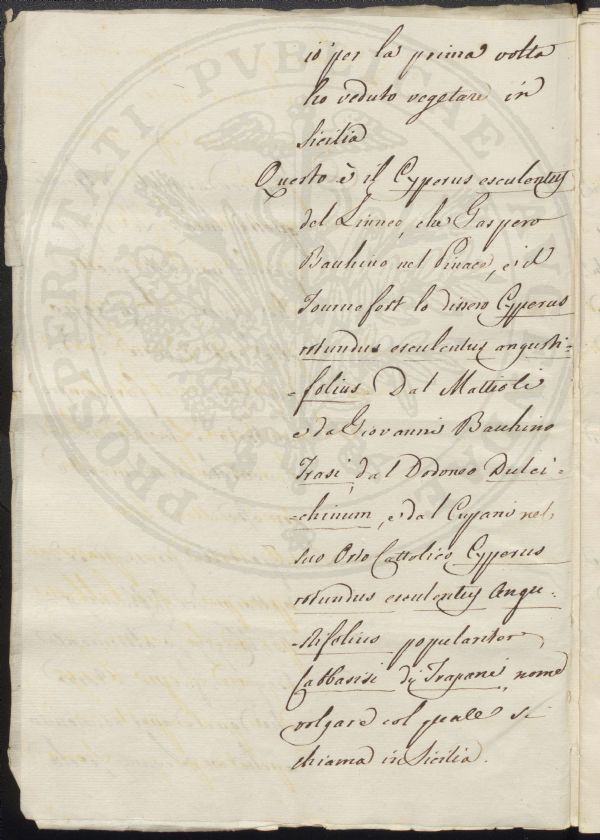 io per la prima volta
ho veduto vegetare in
Sicilia
Questo è il Cyperus esculentus
del Linneo, che Gaspero
Bauhino nel Pinace, e il
Tournefort lo dissero Cyperus
rotundus esculentus angusti-
=folius. Dal Mattioli
e da Giovanni Bauhino
Trasi, dal Dodoneo Dulci-
-chinum, e dal Cupani nel
suo Orto Cattolico Cyperus
rotundus esculentus Angu-
-stifolius populariter
Cabbasisi di Trapani, nome
volgare col quale si
chiama in Sicilia.
PROSPERITATI PVBLICAE